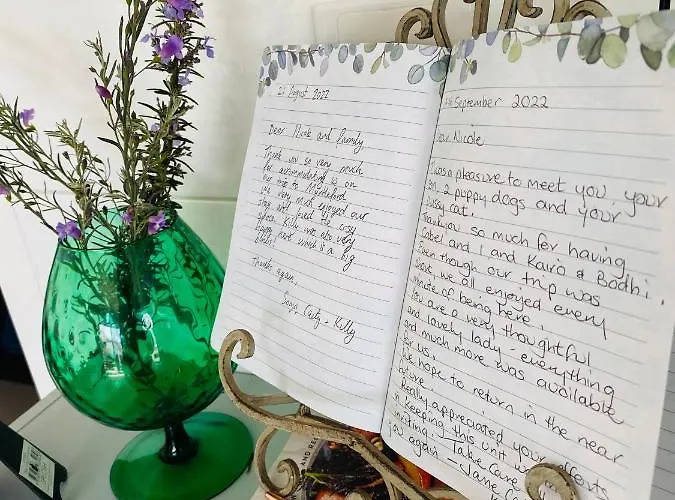 26 August 2022
Dear Nicole and family
Thank you so very much
for accommodating us on
our trip to
We very much enjoyed our
stay and found the cosy
space. Kelly was also very
happy here which is a big
Thanks again,
Carly + Kelly
September 2022
Dear Nicole
was a pleasure to meet you, your
2 puppy dogs and your
pussy cat.
Thank you so much for having
and I and Kairo & Bodhi.
Even though our trip was
short, we all enjoyed every
minute of being here.
You are a very thoughtful
and lovely lady - everything
and much more was available
for us.
We hope to return in the near
future.
Really appreciated your efforts
in keeping this unit
inviting. Take care
you again - Jane